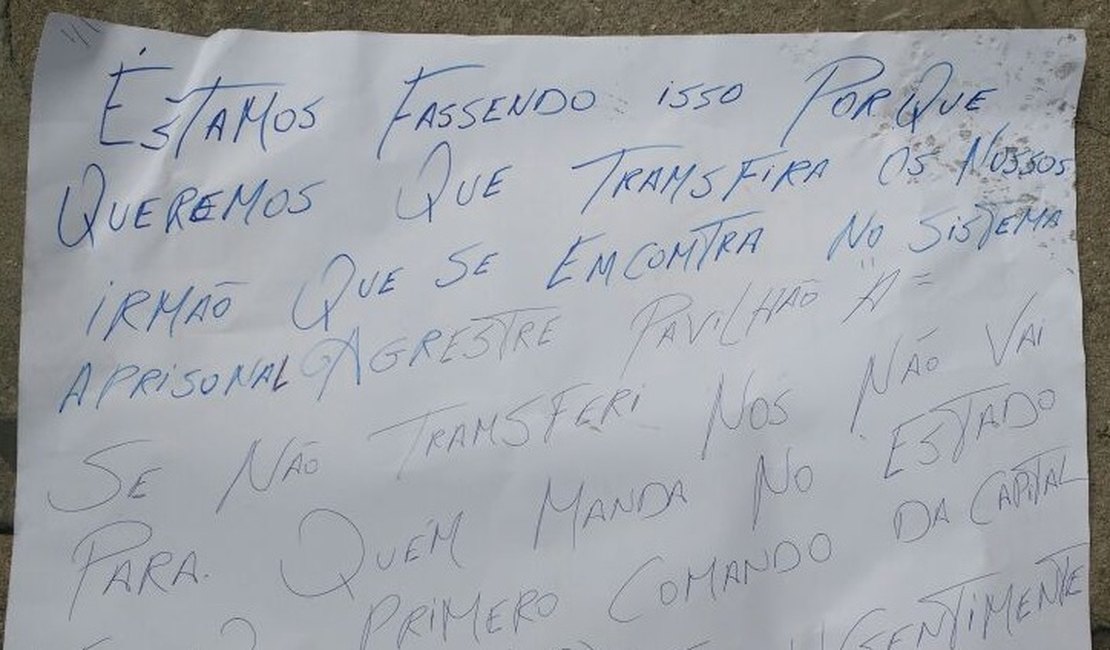 ESTAMOS FASSENDO ISSO PORQUE
QUEREMOS QUE TRAMSFIRA OS NOSSOS
IRMÃO QUE SE EMCOMTRA NO SISTEMA
APRISONAL AGRESTRE PAVILHÃO "A"
SE NÃO TRAMSFERI NOS NÃO VAI
PARA. QUEM MANDA NO ESTADO
PRIMERO COMANDO DA CAPITAL